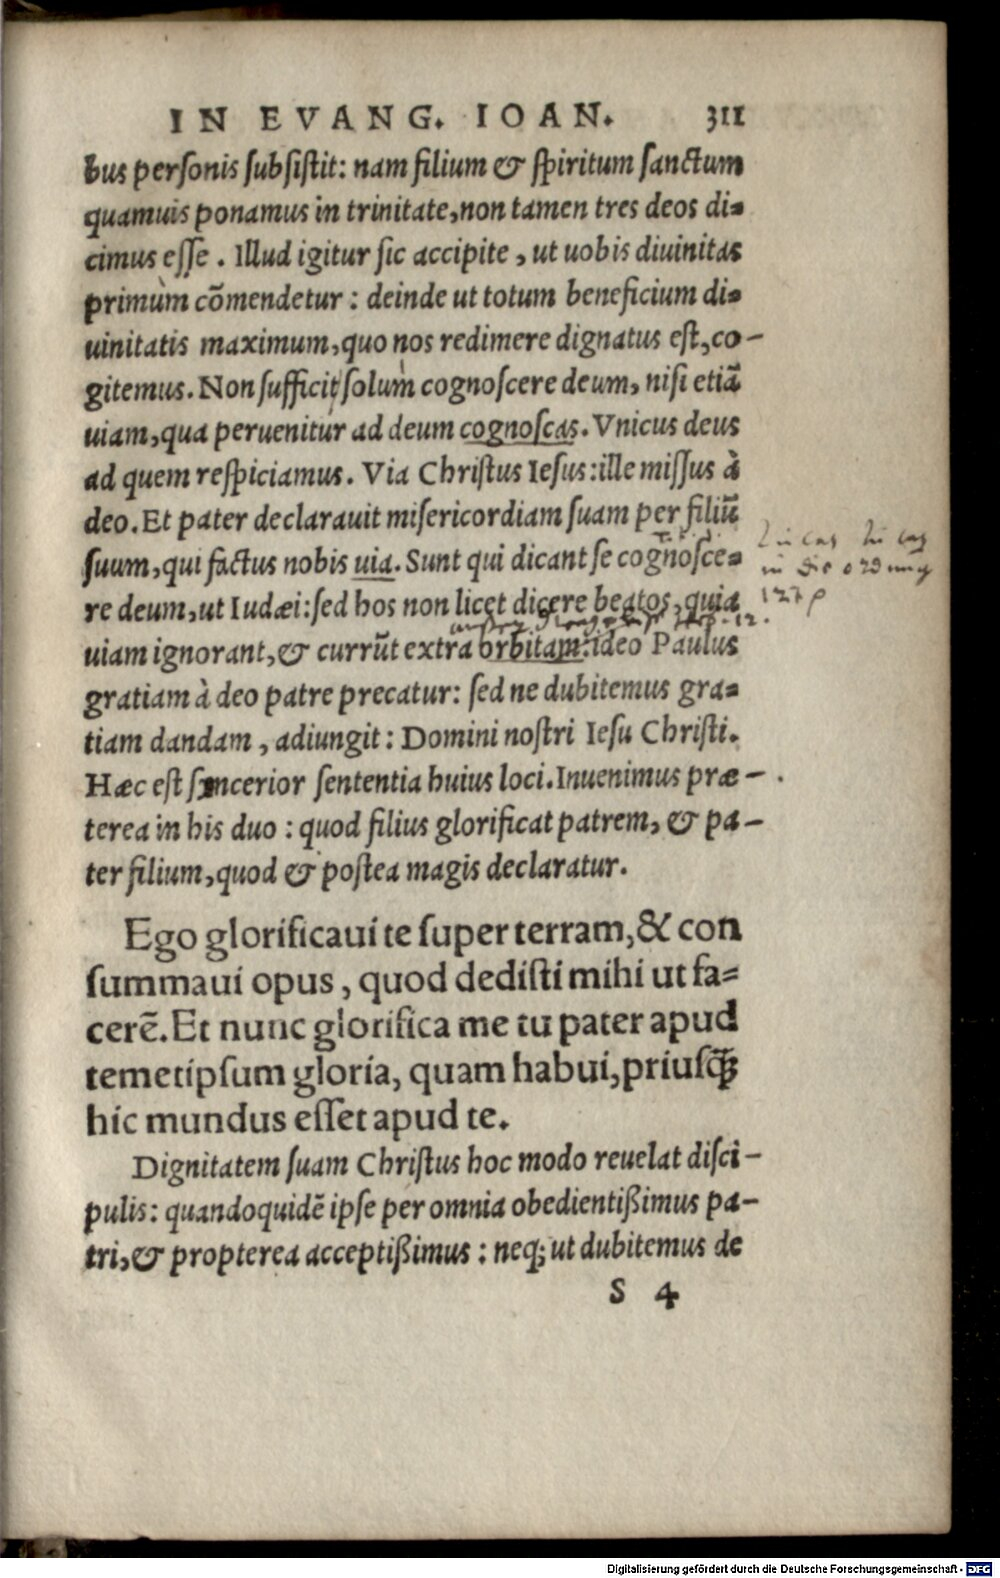 IN EVANG. IOAN. 311
bus personis subsistit: nam filium & spiritum sanctum
quamuis ponamus in trinitate, non tamen tres deos di=
cimus esse. Illud igitur sic accipite, ut uobis diuinitas
primùm cōmendetur: deinde ut totum beneficium di=
uinitatis maximum, quo nos redimere dignatus est, co-
gitemus. Non sufficit solùm cognoscere deum, nisi etiā
uiam, qua peruenitur ad deum cognoscas. Vnicus deus
ad quem respiciamus. Via Christus Iesus: ille missus à
deo. Et pater declarauit misericordiam suam per filiū
suum, qui factus nobis uia. Sunt qui dicant se cognosce=
re deum, ut Iudæi: sed hos non licet dicere beatos, quia
uiam ignorant, & currūt extra orbitam: ideo Paulus
gratiam à deo patre precatur: sed ne dubitemus gra=
tiam dandam, adiungit: Domini nostri Iesu Christi.
Hæc est syncerior sententia huius loci. Inuenimus præ-
terea in his duo: quod filius glorificat patrem, & pa-
ter filium, quod & postea magis declaratur.
Ego glorificaui te super terram, & con
summaui opus, quod dedisti mihi ut fa=
cerē. Et nunc glorifica me tu pater apud
temetipsum gloria, quam habui, priusq̃
hic mundus esset apud te.
Dignitatem suam Christus hoc modo reuelat disci-
pulis: quandoquidē ipse per omnia obedientißimus pa-
tri, & propterea acceptißimus: neq; ut dubitemus de
S 4
in die ordnung
Digitalisierung gefördert durch die Deutsche Forschungsgemeinschaft - DFG